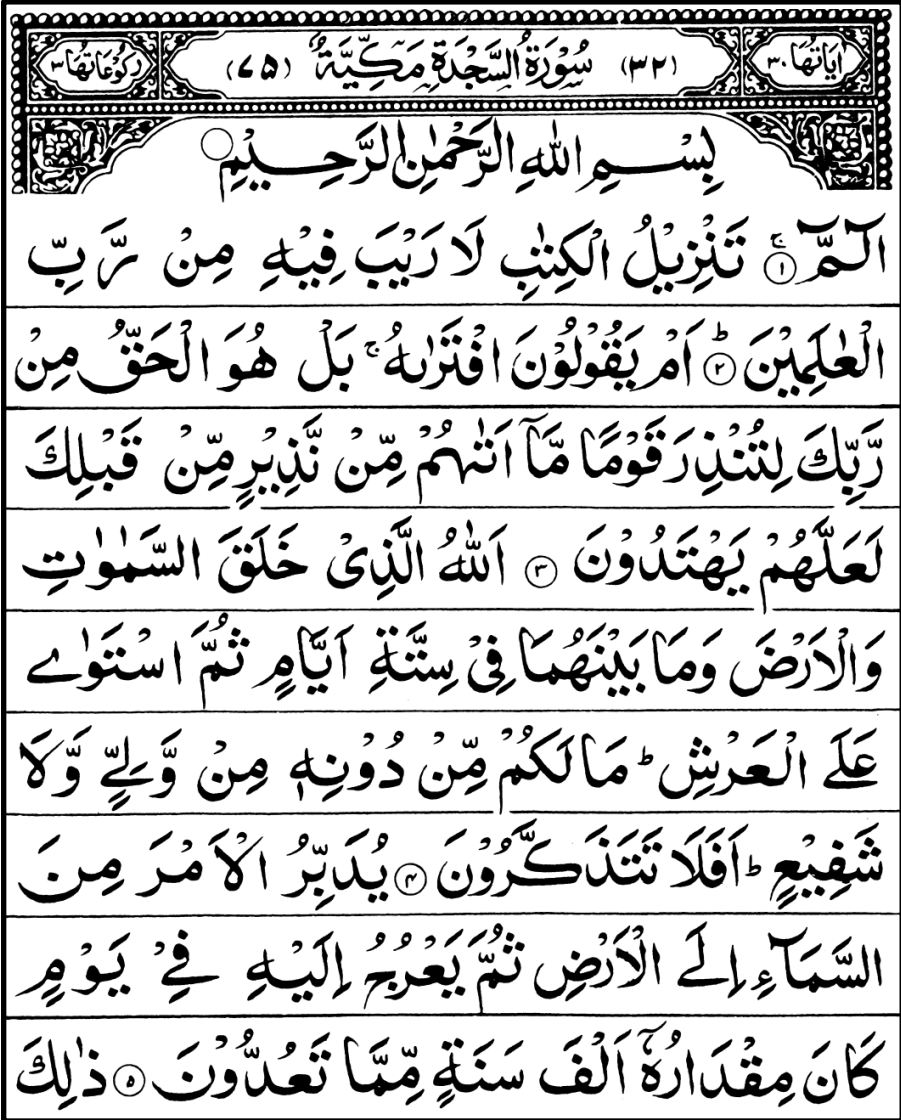 اٰيَاتُهَا ٣٠ (٣٢) سُوْرَةُ السَّجْدَةِ مَكِّيَّةٌ (٧٥) رُكُوْعَاتُهَا ٣
بِسْمِ اللّٰهِ الرَّحْمٰنِ الرَّحِيْمِ
الٓمّٓ ۚ ١ تَنْزِيْلُ الْكِتٰبِ لَا رَيْبَ فِيْهِ مِنْ رَّبِّ
الْعٰلَمِيْنَ ؕ ٢ اَمْ يَقُوْلُوْنَ افْتَرٰىهُ ۚ بَلْ هُوَ الْحَقُّ مِنْ
رَّبِّكَ لِتُنْذِرَ قَوْمًا مَّاۤ اَتٰىهُمْ مِّنْ نَّذِيْرٍ مِّنْ قَبْلِكَ
لَعَلَّهُمْ يَهْتَدُوْنَ ٣ اَللّٰهُ الَّذِىْ خَلَقَ السَّمٰوٰتِ
وَالْاَرْضَ وَمَا بَيْنَهُمَا فِىْ سِتَّةِ اَيَّامٍ ثُمَّ اسْتَوٰى
عَلَى الْعَرْشِ ؕ مَا لَكُمْ مِّنْ دُوْنِهٖ مِنْ وَّلِىٍّ وَّلَا
شَفِيْعٍ ؕ اَفَلَا تَتَذَكَّرُوْنَ ٤ يُدَبِّرُ الْاَمْرَ مِنَ
السَّمَآءِ اِلَى الْاَرْضِ ثُمَّ يَعْرُجُ اِلَيْهِ فِىْ يَوْمٍ
كَانَ مِقْدَارُهٗۤ اَلْفَ سَنَةٍ مِّمَّا تَعُدُّوْنَ ٥ ذٰلِكَ